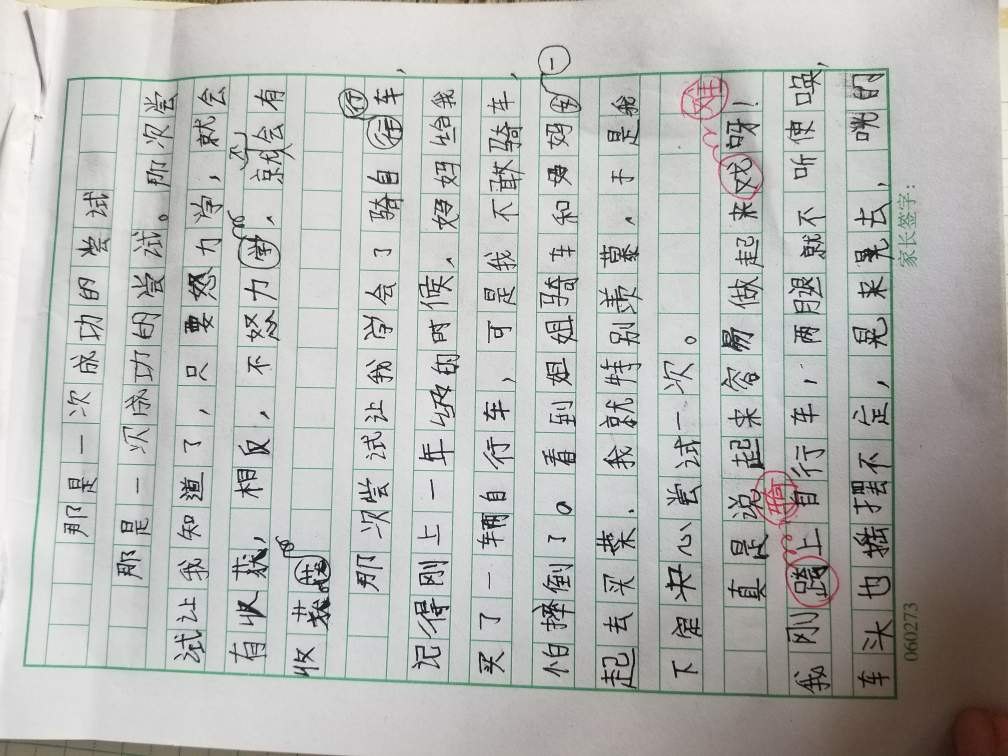 那是一次成功的尝试
那是一次成功的尝试。那次尝
试让我知道了，只要努力学，就会
有收获，相反，不努力学，就不会有
收获。
那次尝试让我学会了骑自行车，
记得刚上一年级的时候，妈妈给我
买了一辆自行车，可是我不敢骑车，
怕摔倒了。看到姐姐骑车和妈妈一
起去买菜，我就特别羡慕，于是我
下定决心尝试一次。
真是说起来容易做起来难呀！
我刚骑上自行车，两腿就不听使唤，
车头也摇摆不定，晃来晃去，咣的
家长签字：
060273